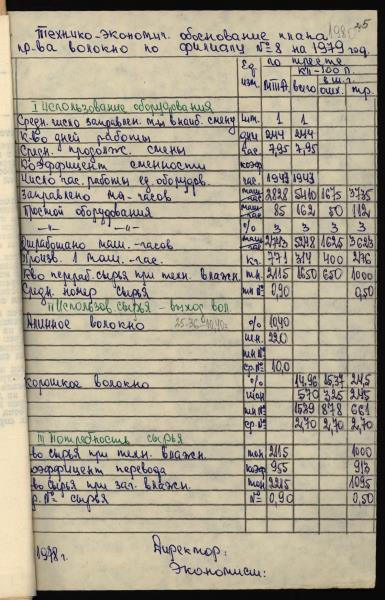 1980 25
Технико-экономич. обоснование плана
пр-ва волокно по филиалу №8 на 1979 год.
Ед. изм. по тресте
КЛ-100 Л.
МТА. всего в т.ч. тр.
I Использование оборудования
Средн. число заправлен. м-ы в наиб. смену шт. 1 1
К-во дней работы дни 244 244
Средн. продолж. смены час. 7,95 7,95
Коэффициент сменности коэф
Число час. работы ед. оборудов. час. 1943 1943
Заправлено м-часов маш-час 2828 5410 1675 3735
Простой оборудования маш-час 85 162 50 112
-"- -"- % 3 3 3 3
Выработано маш.-часов маш-час 2743 5248 1625 3623
Произв. 1 маш.-час. кг. 771 314 400 276
К-во перераб. сырья при техн. влажн. тн. 2115 1650 650 1000
Средн. номер сырья тн № 0,90 0,50
II Использов. сырья - выход вол.
Длинное волокно % 10,40
цн. 220
цн №
ср.№ 10,0
Короткое волокно % 14,96 15,37 24,5
цен 570 325 245
цн № 1539 878 661
ср № 2,70 2,70 2,70
III Потребность сырья
во сырья при техн. влажн. тон 2115 1000
коэффицент перевода коэф 955 913
во сырья при заг. влажн. тон 2215 1095
р. №- сырья №= 0,90 0,50
1978 г. Директор:
Экономист: